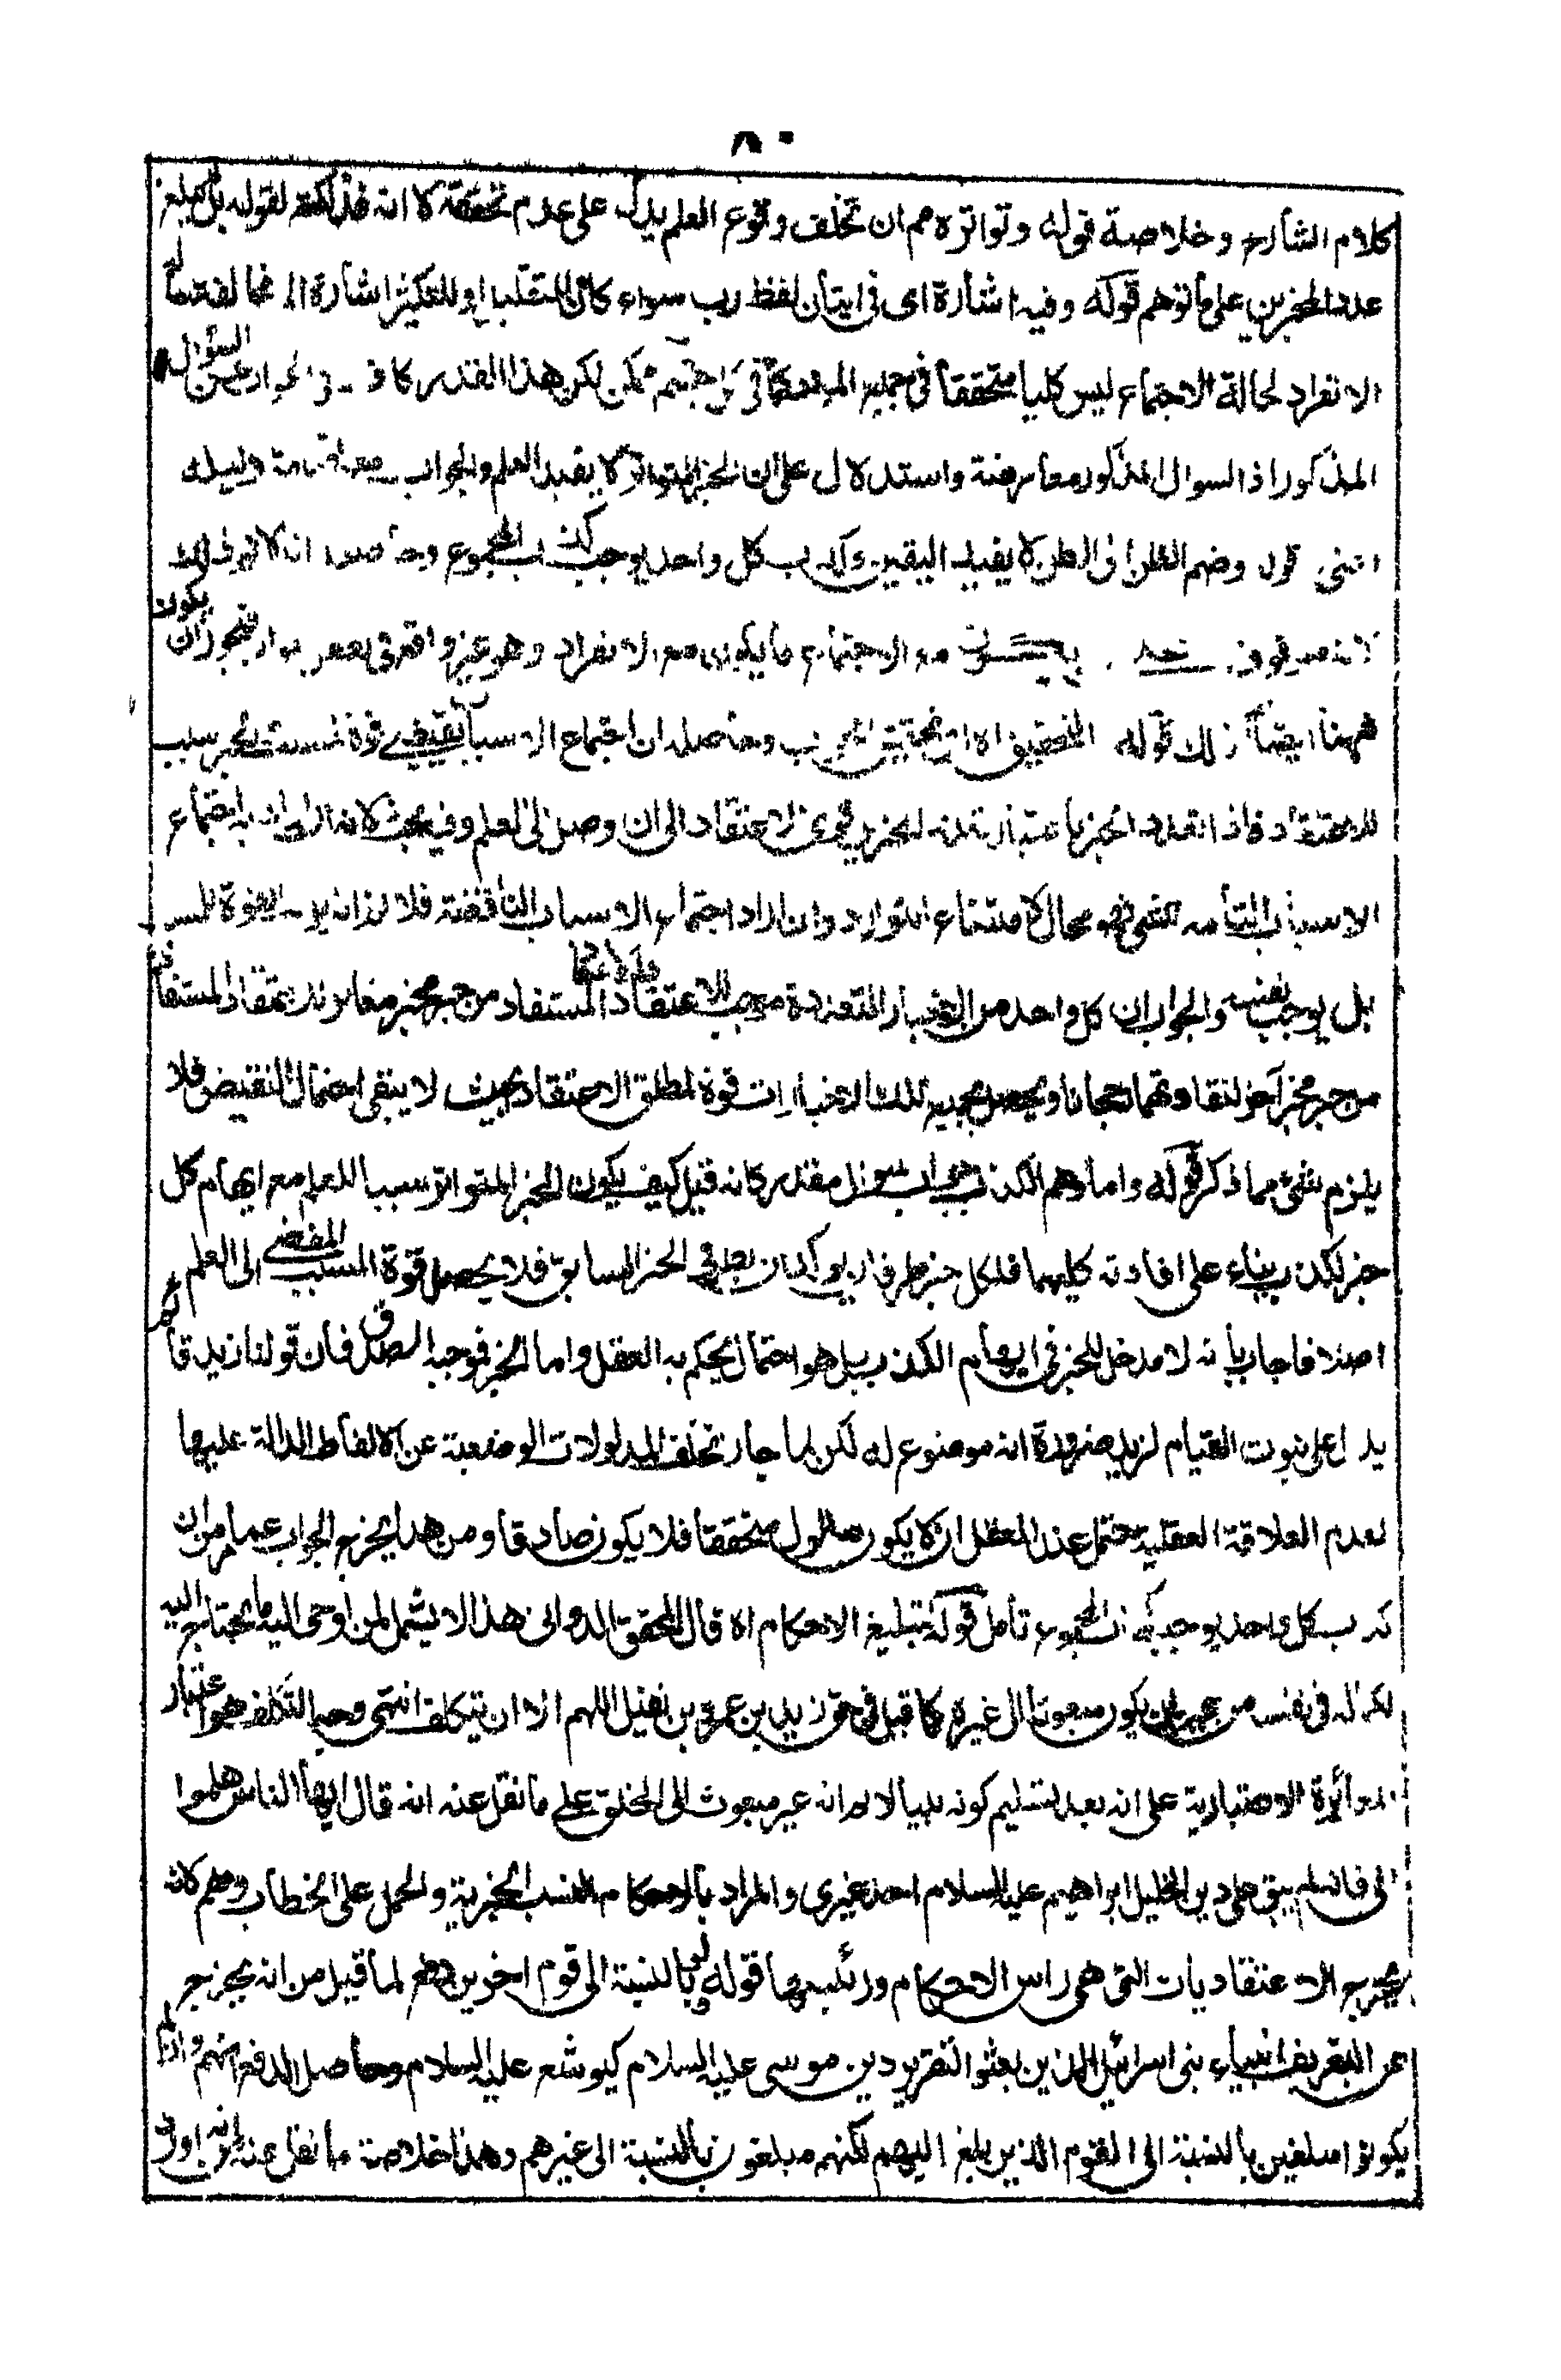 ٨٠
كلام الشارح وخلاصة قوله وتواتره مم ان تخلف وقوع العلم يدل على عدم تحققه لا انه لقوله بل مبلغ
عدد المخبرين على ما توهم قوله وفيه اشارة اى فى اتيان لفظ رب سواء كان للتقليل او للتكثير اشارة الى مخالفة
الانفراد لحالة الاجتماع ليس كليا متحققا فى جميع كما فى كل ممكن لكن هذا القدر كاف فى الجواب عن السوال
المذكور اذ السوال المذكور معارضة واستدلال على ان الخبر المتواتر لا يفيد العلم والجواب دليله
قوله وضم الظن الى الظن لا يفيد اليقين وكذب كل واحد يوجب كذب المجموع
مع الاجتماع ما يكون مع الانفراد وهو غير واقع فى بعض فيجوز ان يكون
ههنا ايضا كذلك قوله وحاصله ان اجتماع الاسباب يقتضى قوة المسبب
للاعتقاد فاذا تعدد الخبر باعتبار الى ان وصل الى العلم وفيه بحث لانه ان اراد به اجتماع
الاسباب التامة فهو محال لامتناع التوارد وان اراد اجتماع الاسباب الناقصة فلا
بل يوجب نفسه والجواب ان كل واحد من الاخبار المتعددة موجب للاعتقاد المستفاد من خبر مخبر مغاير للاعتقاد المستفاد
من خبر مخبر آخر ويحصل بجميع تلك الاخبارات قوة لمطلق الاعتقاد بحيث لا يبقى احتمال النقيض فلا
يلزم شئ مما ذكر قوله واما وهم الكذب جواب سوال مقدر كانه قيل كيف يكون الخبر المتواتر سببا للعلم مع ايهام كل
خبر لكذب بناء على افادته كليهما فلكل خبر الخبر السابق فلا يحصل قوة السبب المفضى الى العلم
اصلا فاجاب بانه لا مدخل للخبر فى ايهام الكذب بل هو احتمال يحكم به العقل واما الخبر فموجبه الصدق فان قولنا زيد قائم
يدل على ثبوت القيام لزيد ضرورة انه موضوع له لكن لما جاز تخلف المدلولات الوضعية عن الالفاظ الدالة عليها
لعدم العلاقة العقلية احتمل عند العقل ان لا يكون مدلوله متحققا فلا يكون صادقا ومن هذا يخرج الجواب عما مر من ان
كذب كل واحد يوجب كذب المجموع تامل قوله تبليغ الاحكام اه قال المحقق الدوانى هذا لا يشمل لمن اوحى اليه ما يحتاج اليه
لكماله فى نفسه من غير ان يكون مبعوثا الى غيره كما قيل فى حق زيد بن عمرو بن نفيل اللهم الا ان يتكلف انتهى وجه التكلف هو اعتبار
المغائرة الاعتبارية على انه بعد تسليم كونه نبيا لا نم انه غير مبعوث الى الخلق على ما نقل عنه انه قال ايها الناس هلموا
الى فانه لم يبق على دين الخليل ابراهيم عليه السلام احد غيرى والمراد بالاحكام النسب الخبرية والحمل على الخطاب وهم لانه
يخرج الاعتقاديات التى هى راس الاحكام ورئيسها قوله ولو بالنسبة الى قوم اخرين دفع لما قيل من انه يخرج
عن التعريف انبياء بنى اسرائيل الذين بعثوا لتقرير دين موسى عليه السلام كيوشع عليه السلام وحاصل الدفع انهم وان لم
يكونوا مبلغين بالنسبة الى القوم الذين بلغ اليهم لكنهم مبلغون بالنسبة الى غيرهم وهذا خلاصة ما نقل عنه